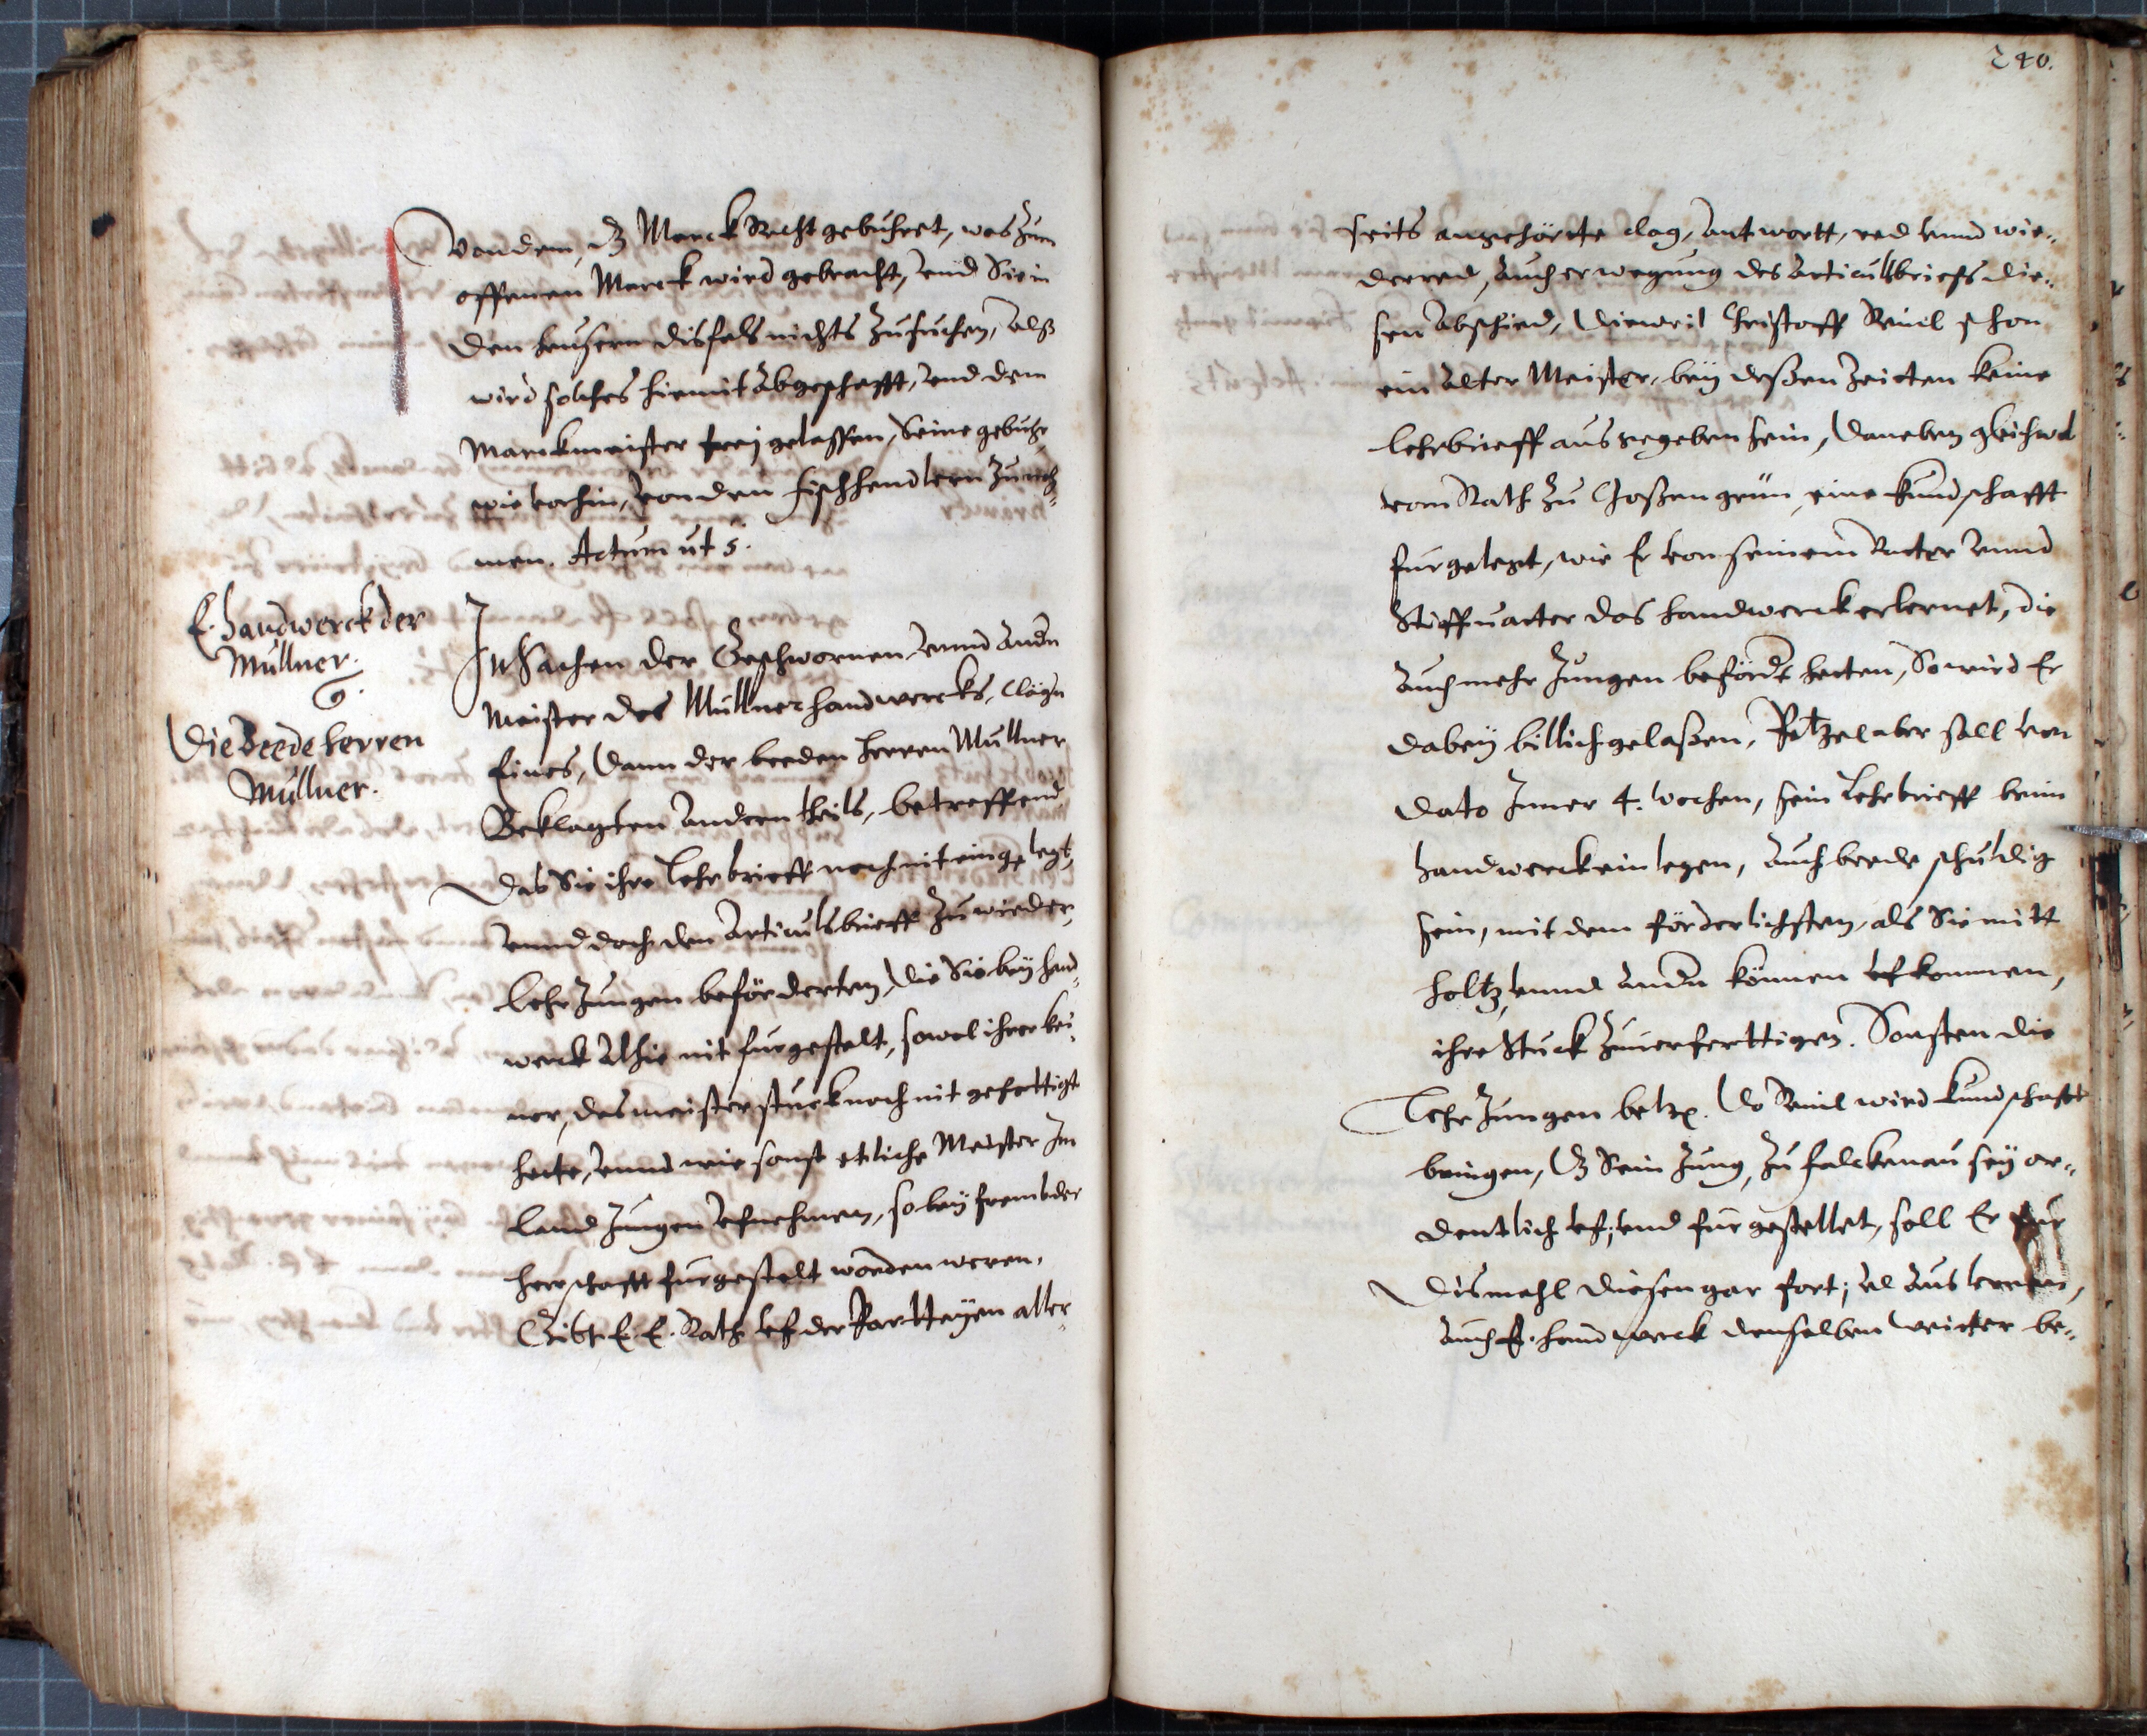 von dem, dz Marck Recht gebühret, was zum
offenen Marck wird gebracht, und Sie in
den heusern disfals nichts zusuchen, Alß
wird solches hiemit Abgeschafft, und dem
Marckmeister frey gelassen, Seine gebühr,
wie vorhin, von den fischhendlern zuneh-
men. Actum ut s.
E. Handwerck der
Müllner.
Die beede herren
Müllner.
In Sachen der Geschwornen unnd Andn
Meister des Müllner handwercks, Clägn
Eines, Dann der beeden herren Müllner
Beklagten Andern theils, betreffend
Das Sie ihre Lehrbrieff noch nit eingelegt,
unnd doch den Articulsbrieff zuwieder,
Lehr Jungen beförderten, die Sie bey hand-
werck Alhie nit furgestelt, sowol ihrer kei-
ner, das meisterstuck noch nit gefertigt
hette, unnd wie sonst etliche Meister Im
Land Jungen ufnehmen, so bey frembder
herrschafft furgestelt worden weren,
Gibt E. E. Rath uf der Partteyen aller-
240.
seits angehörte clag, Antwortt, red unnd wie-
derred, Auch erwegung des Articulsbriefs die-
sen Abschied, Dieweil Christoff schon
ein Alter Meister, bey deßen Zeitten keine
Lehrbrieff aus gegeben sein, Daneben gleichwol
vom Rath zu Goßengrün, eine kundschafft
furgelegt, wie Er von seinem Vatter unnd
Stieffvatter das handwerck erlernet, die
Auch mehr Jungen befördt hetten, So wird Er
dabey billich gelaßen, Petzel aber soll von
dato Inner 4. wochen, sein Lehrbrieff beim
Handwerck einlegen, Auch beede schuldig
sein, mit dem förderlichsten, als Sie mitt
holtz, unnd Andn können ufkommen,
ihre Stuck zuverferttigen. Sonsten die
Lehr Jungen betr. Do wird kundschafft
bringen, dz Sein Jung, zu falckenau sey or-
dentlich uf, und furgestellet, soll Er für
dismahl diesen gar fort, Auslernen,
Auch E. handwerck denselben weitter be-